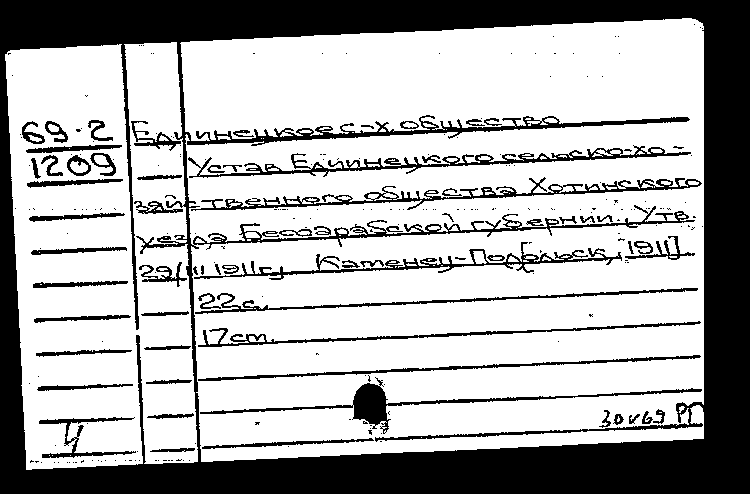 69.2 Единецкое с-х. общество
1209 Устав Единецкого сельско-хо-
зяйственного общества Хотинского
уезда Бессарабской губернии. [Утв.
29/III 1911г.] Каменец-Подольск, [1911]
22с.
17cm.
Ч
30 v 69 РП